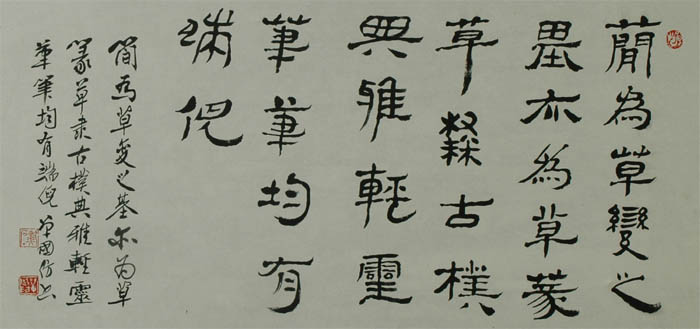 簡為草變之
基亦為草篆
草隸古樸
典雅輕靈
筆筆均有
端倪
简為草變之基亦为草
篆草隶古樸典雅輕靈
筆筆均有端倪 單國防书